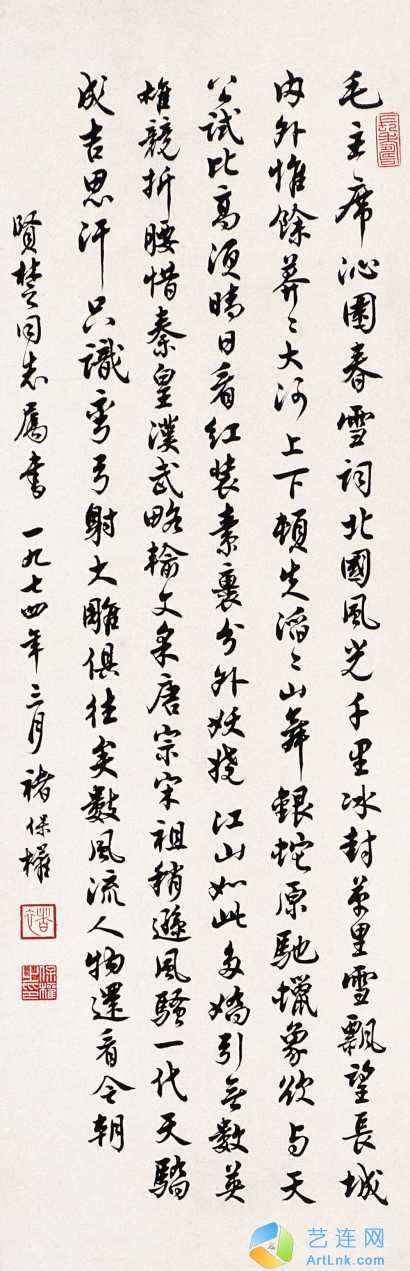 毛主席沁園春雪詞北國風光千里冰封萬里雪飄望長城
内外惟餘莽〻大河上下頓失滔〻山舞銀蛇原馳蠟象欲与天
公試比高須晴日看红装素裹分外妖娆江山如此多嬌引無数英
雄競折腰惜秦皇漢武略輸文采唐宗宋祖稍遜風騷一代天驕
成吉思汗只識彎弓射大雕俱往矣數風流人物還看今朝
賢楚同志属書一九七四年三月褚保權
保權之印
艺连网
ArtLnk.com